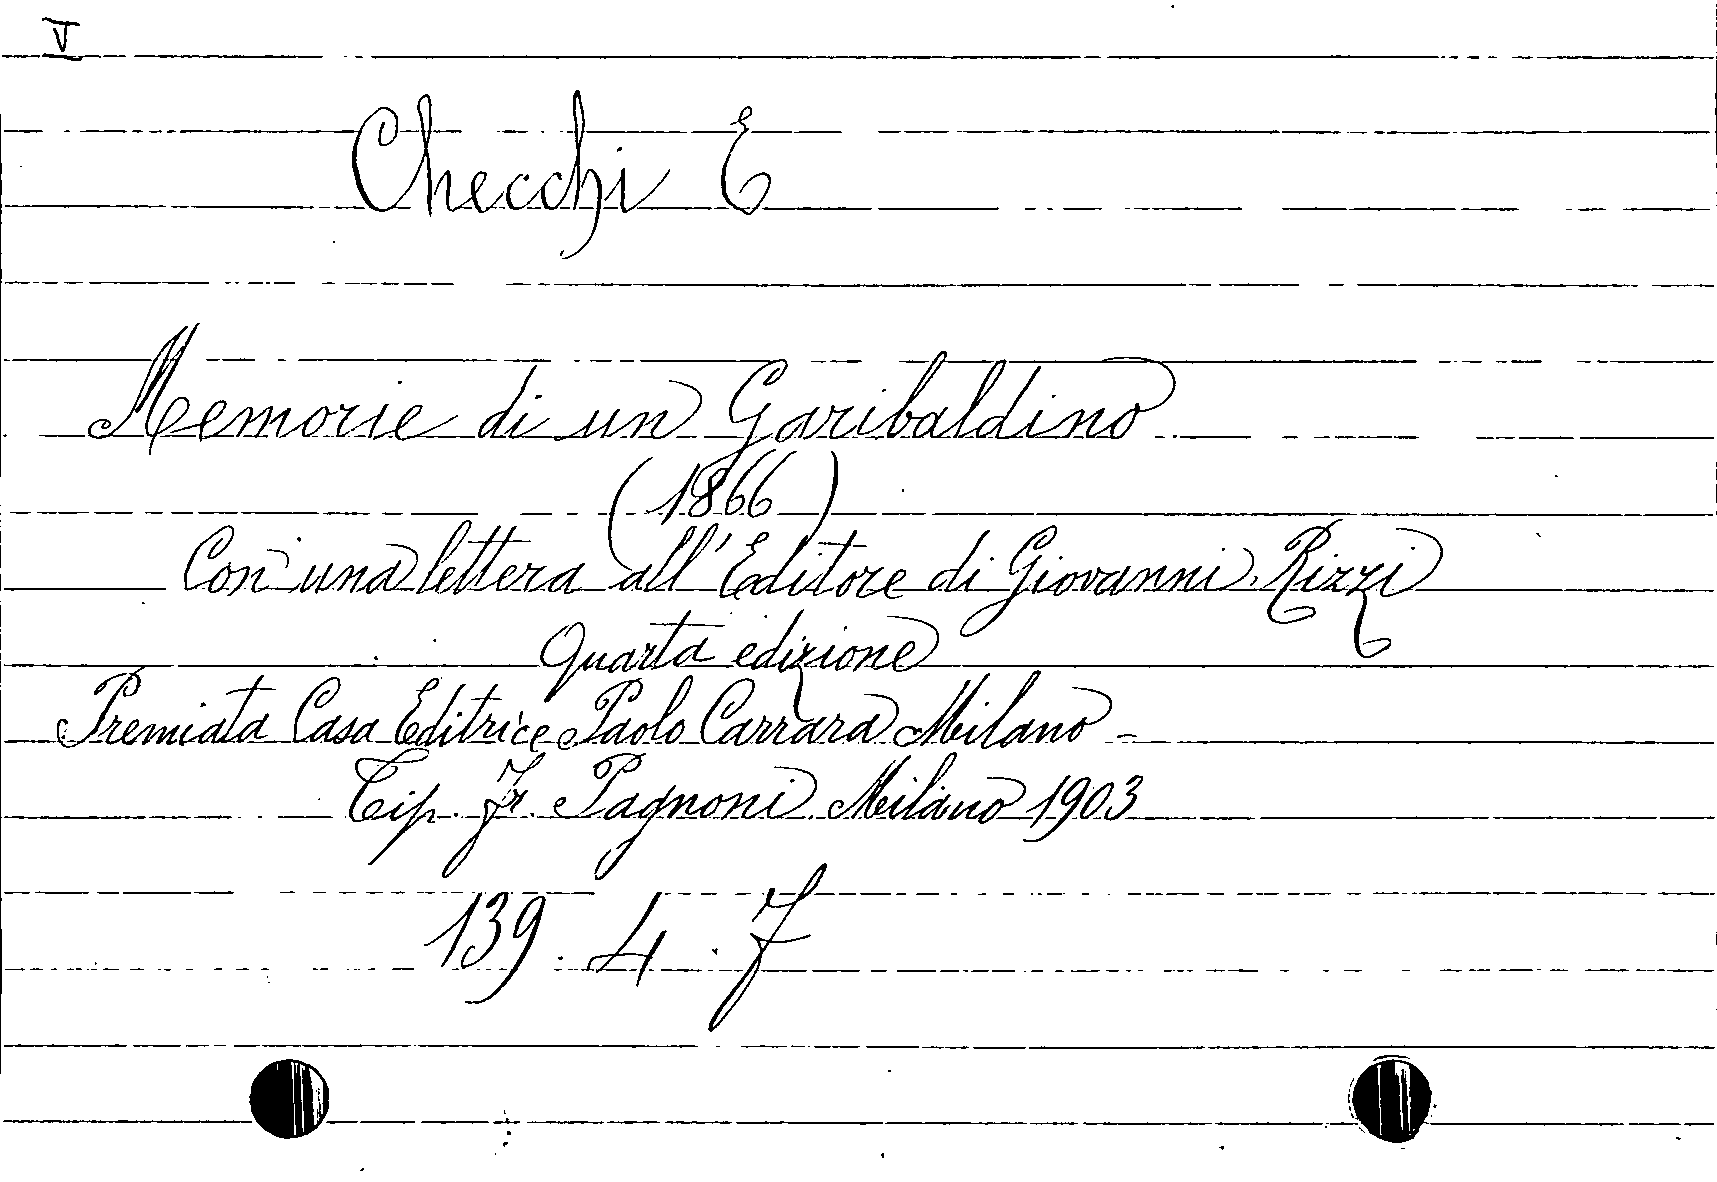 V
Checchi E
Memorie di un Garibaldino
(1866)
Con una lettera all'Editore di Giovanni Rizzi
Quarta edizione
Premiata Casa Editrice Paolo Carrara Milano -
Tip. Fr. Pagnoni Milano 1903
139. 4. 7